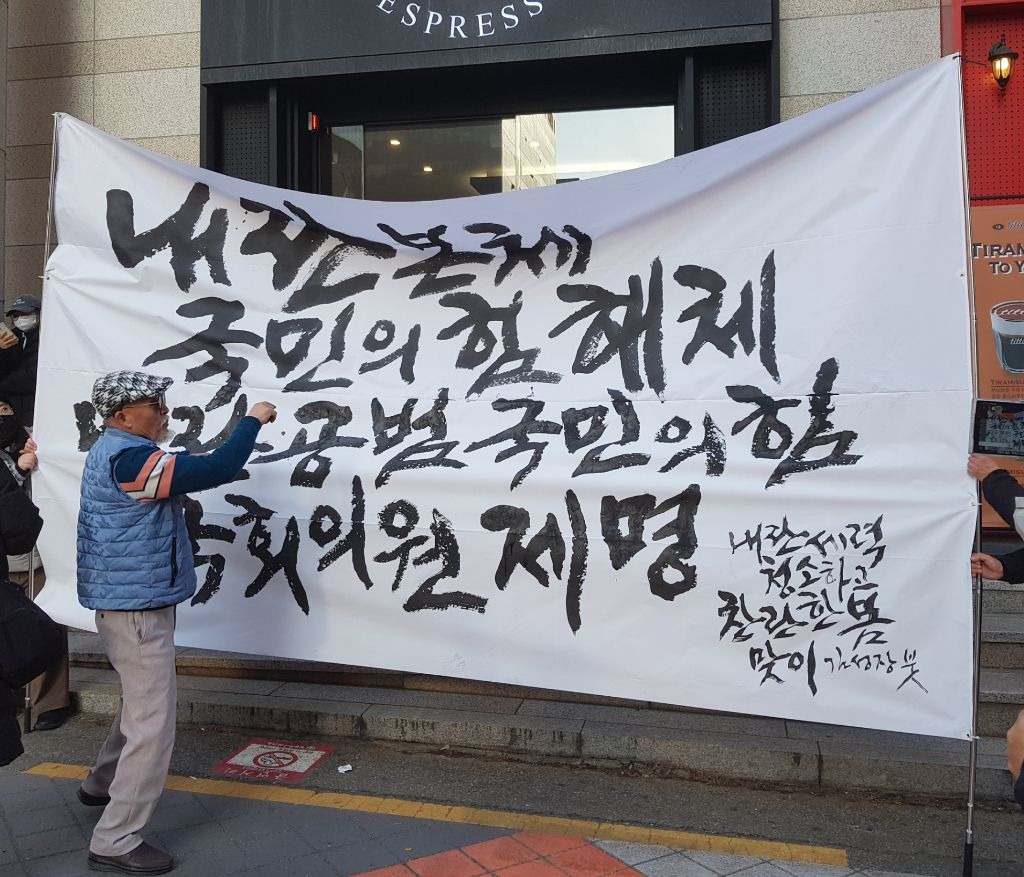 ESPRESS
내란본제
국민의힘 해체
내란공범 국민의힘
국회의원 제명
내란세력
청소하고
찬란한 봄
맞이 김성장 붓
TIRAMIS
TO Y
TIRAMIS